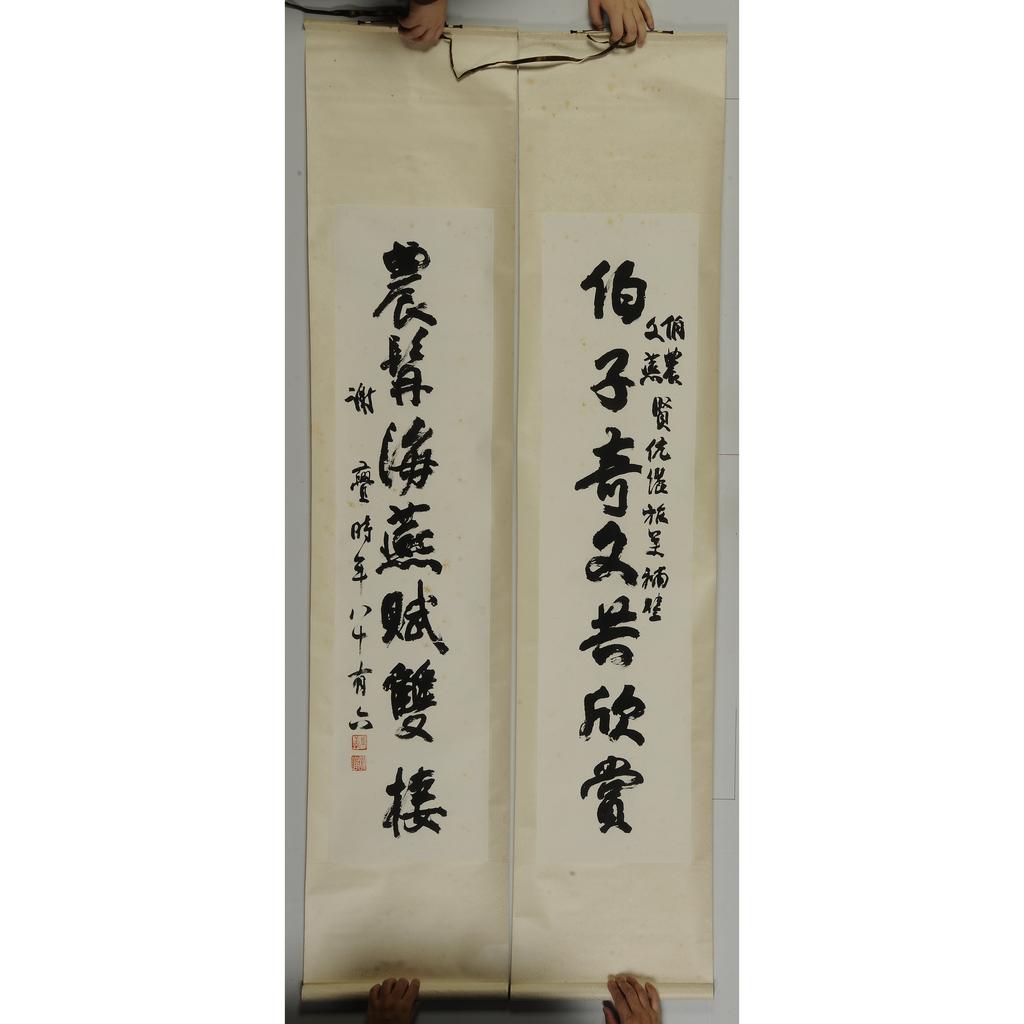 伯子奇文共欣賞
伯農
文燕
賢伉儷雅補壁
農髯海燕賦雙棲
謝時年八十有六